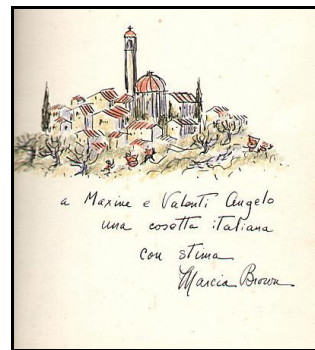 a Maxine e Valenti Angelo
una cosetta italiana
con stima
Marcia Brown